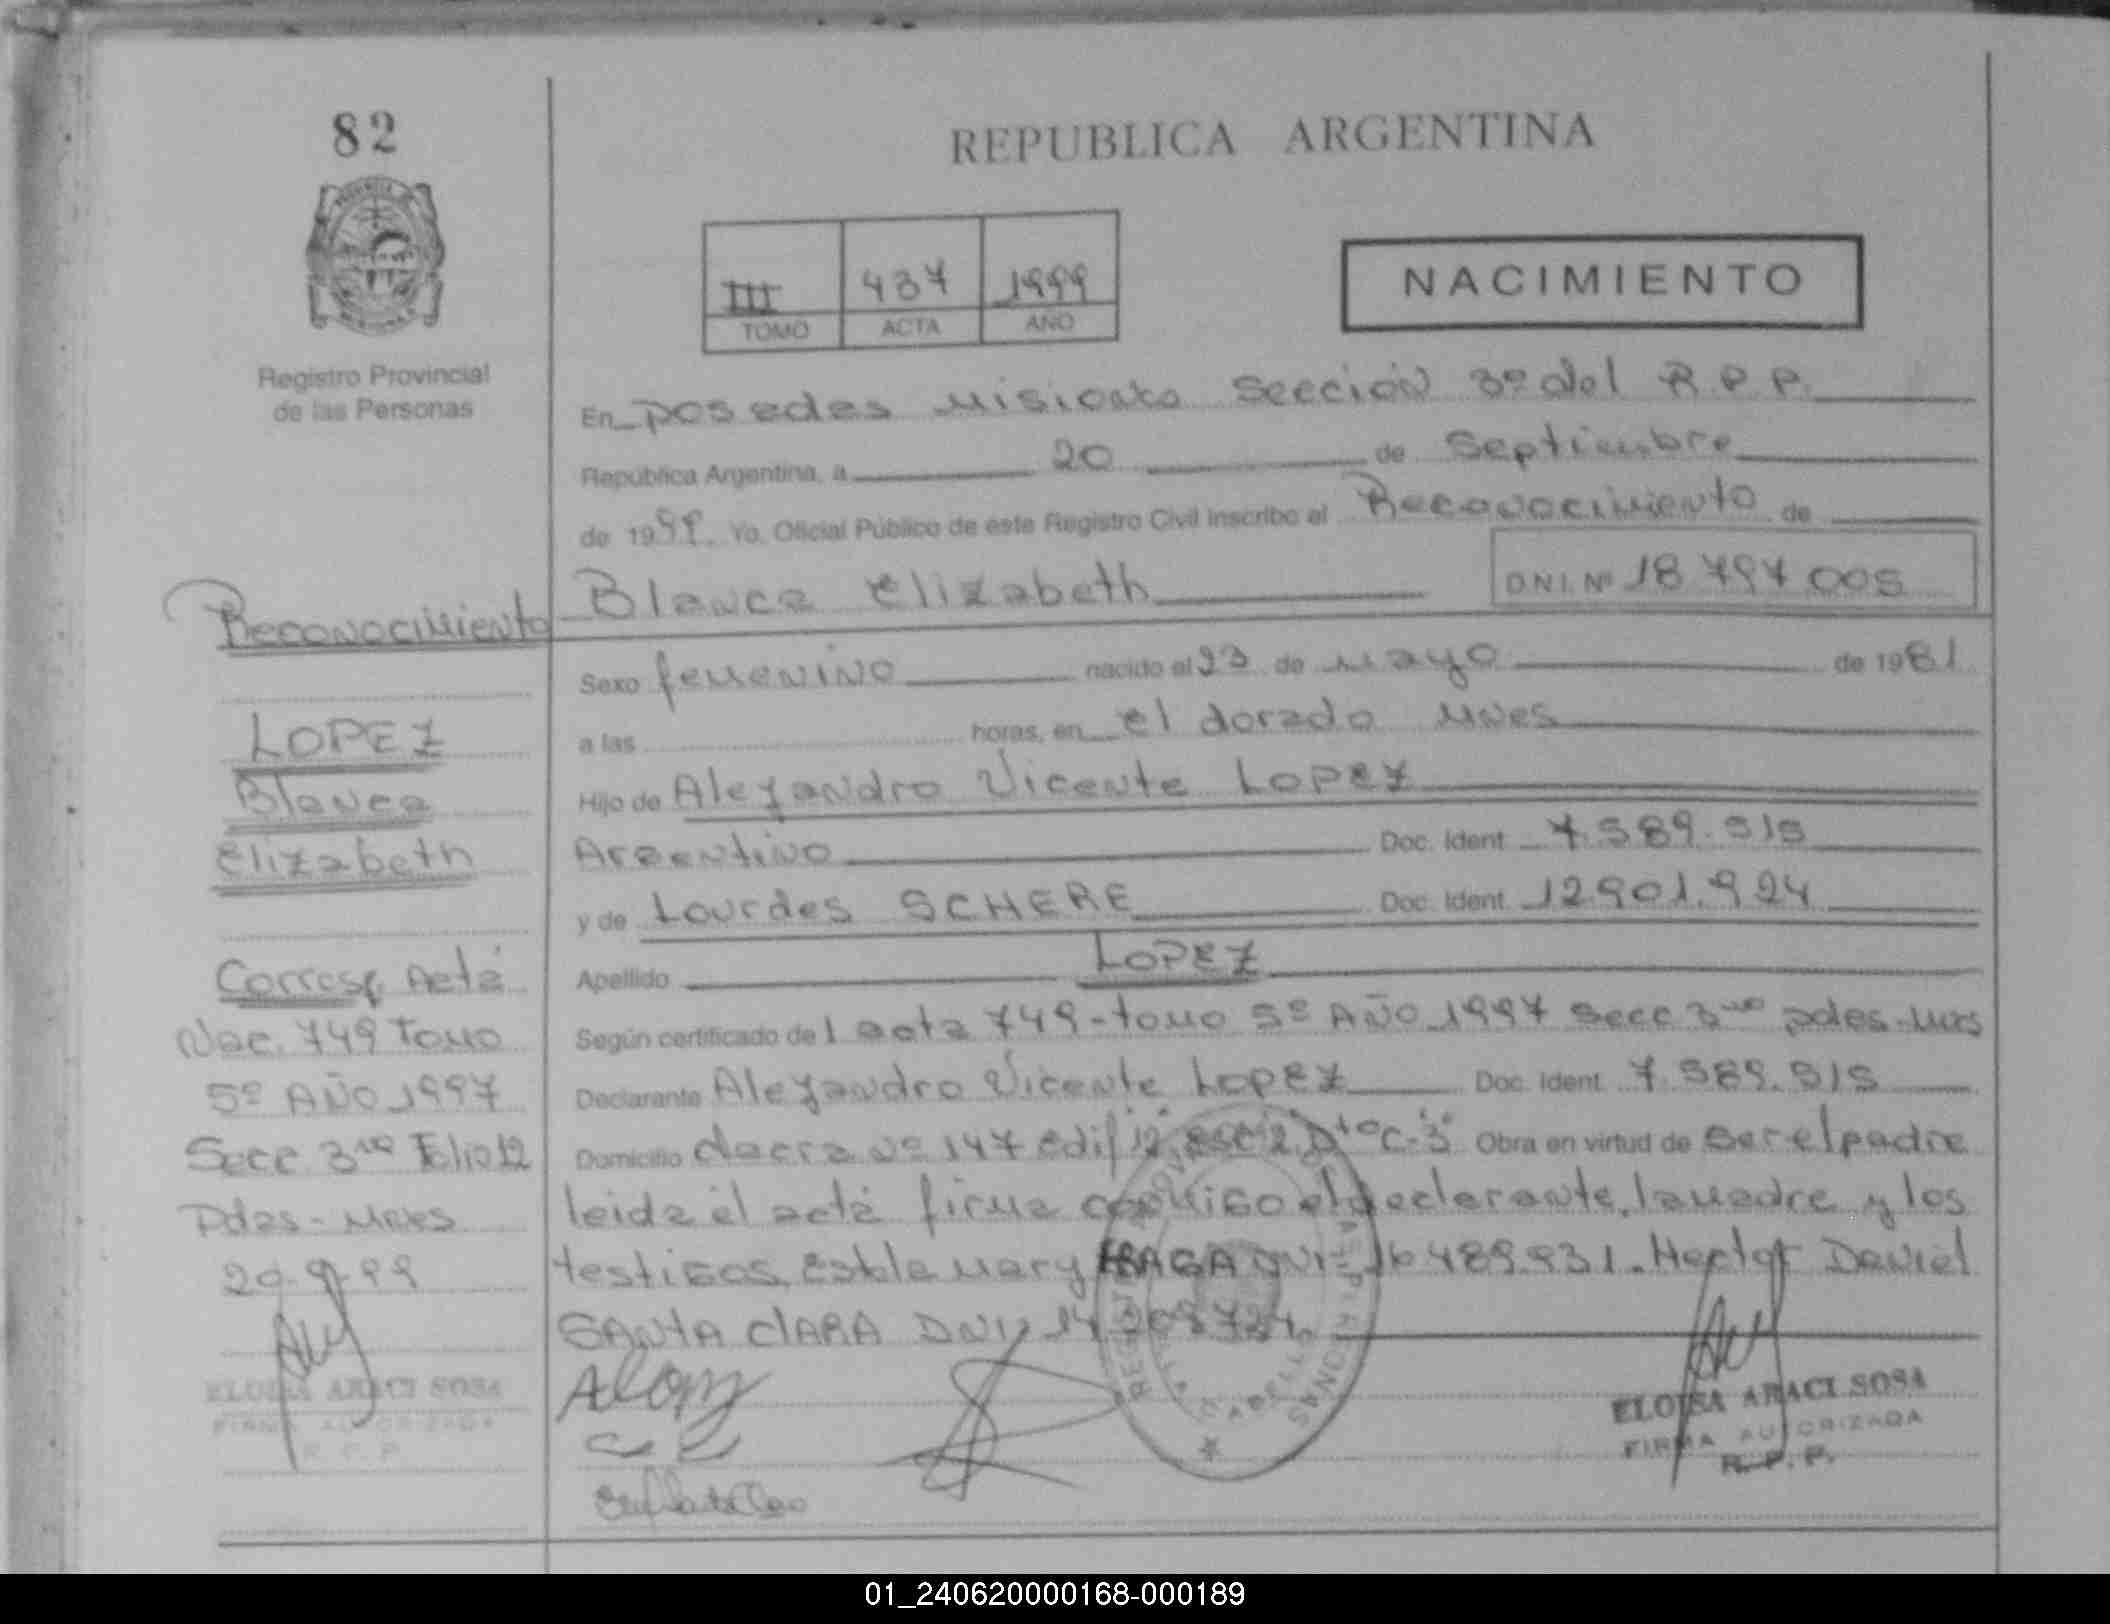 82
REPUBLICA ARGENTINA
III 437 1999
TOMO ACTA AÑO
NACIMIENTO
Registro Provincial
de las Personas
En posedes Misiones Sección 3º del R.P.P.
República Argentina, a 20 de Septiembre
de 1999. Yo, Oficial Público de este Registro Civil inscribo el Reconocimiento de
Blanca Elizabeth D.N.I. Nº 18 797 005
Sexo femenino nacido el 23 de mayo de 1981
a las horas, en el dorado Mnes
Hijo de Alejandro Vicente Lopez
Argentino Doc. Ident 7.589.515
y de Lourdes SCHERE Doc. Ident. 12.901.924
Apellido LOPEZ
Según certificado del acta 749-tomo 5º AÑO 1997 Secc 3ra pdas-Mnes
Declarante Alejandro Vicente Lopez Doc. Ident 7.589.515
Domicilio chacra Nº 147 edif 12 esc 2 Dto C-3 Obra en virtud de ser el padre
leida el acta firma conmigo el declarante, la madre y los
testigos, Estela Mary FRAGA DNI 16 489.931. Hector Daniel
SANTA CLARA DNI 14 209 724
Reconocimiento
LOPEZ
Blanca
Elizabeth
Corresp. Acta
Nac. 749 Tomo
5º AÑO 1997
Secc 3ra Folio 12
Pdas-Mnes
20-9-99
ELOISA ARACI SOSA
FIRMA AUTORIZADA
R.P.P.
ELOISA ARACI SOSA
FIRMA AUTORIZADA
R.P.P.
01_240620000168-000189